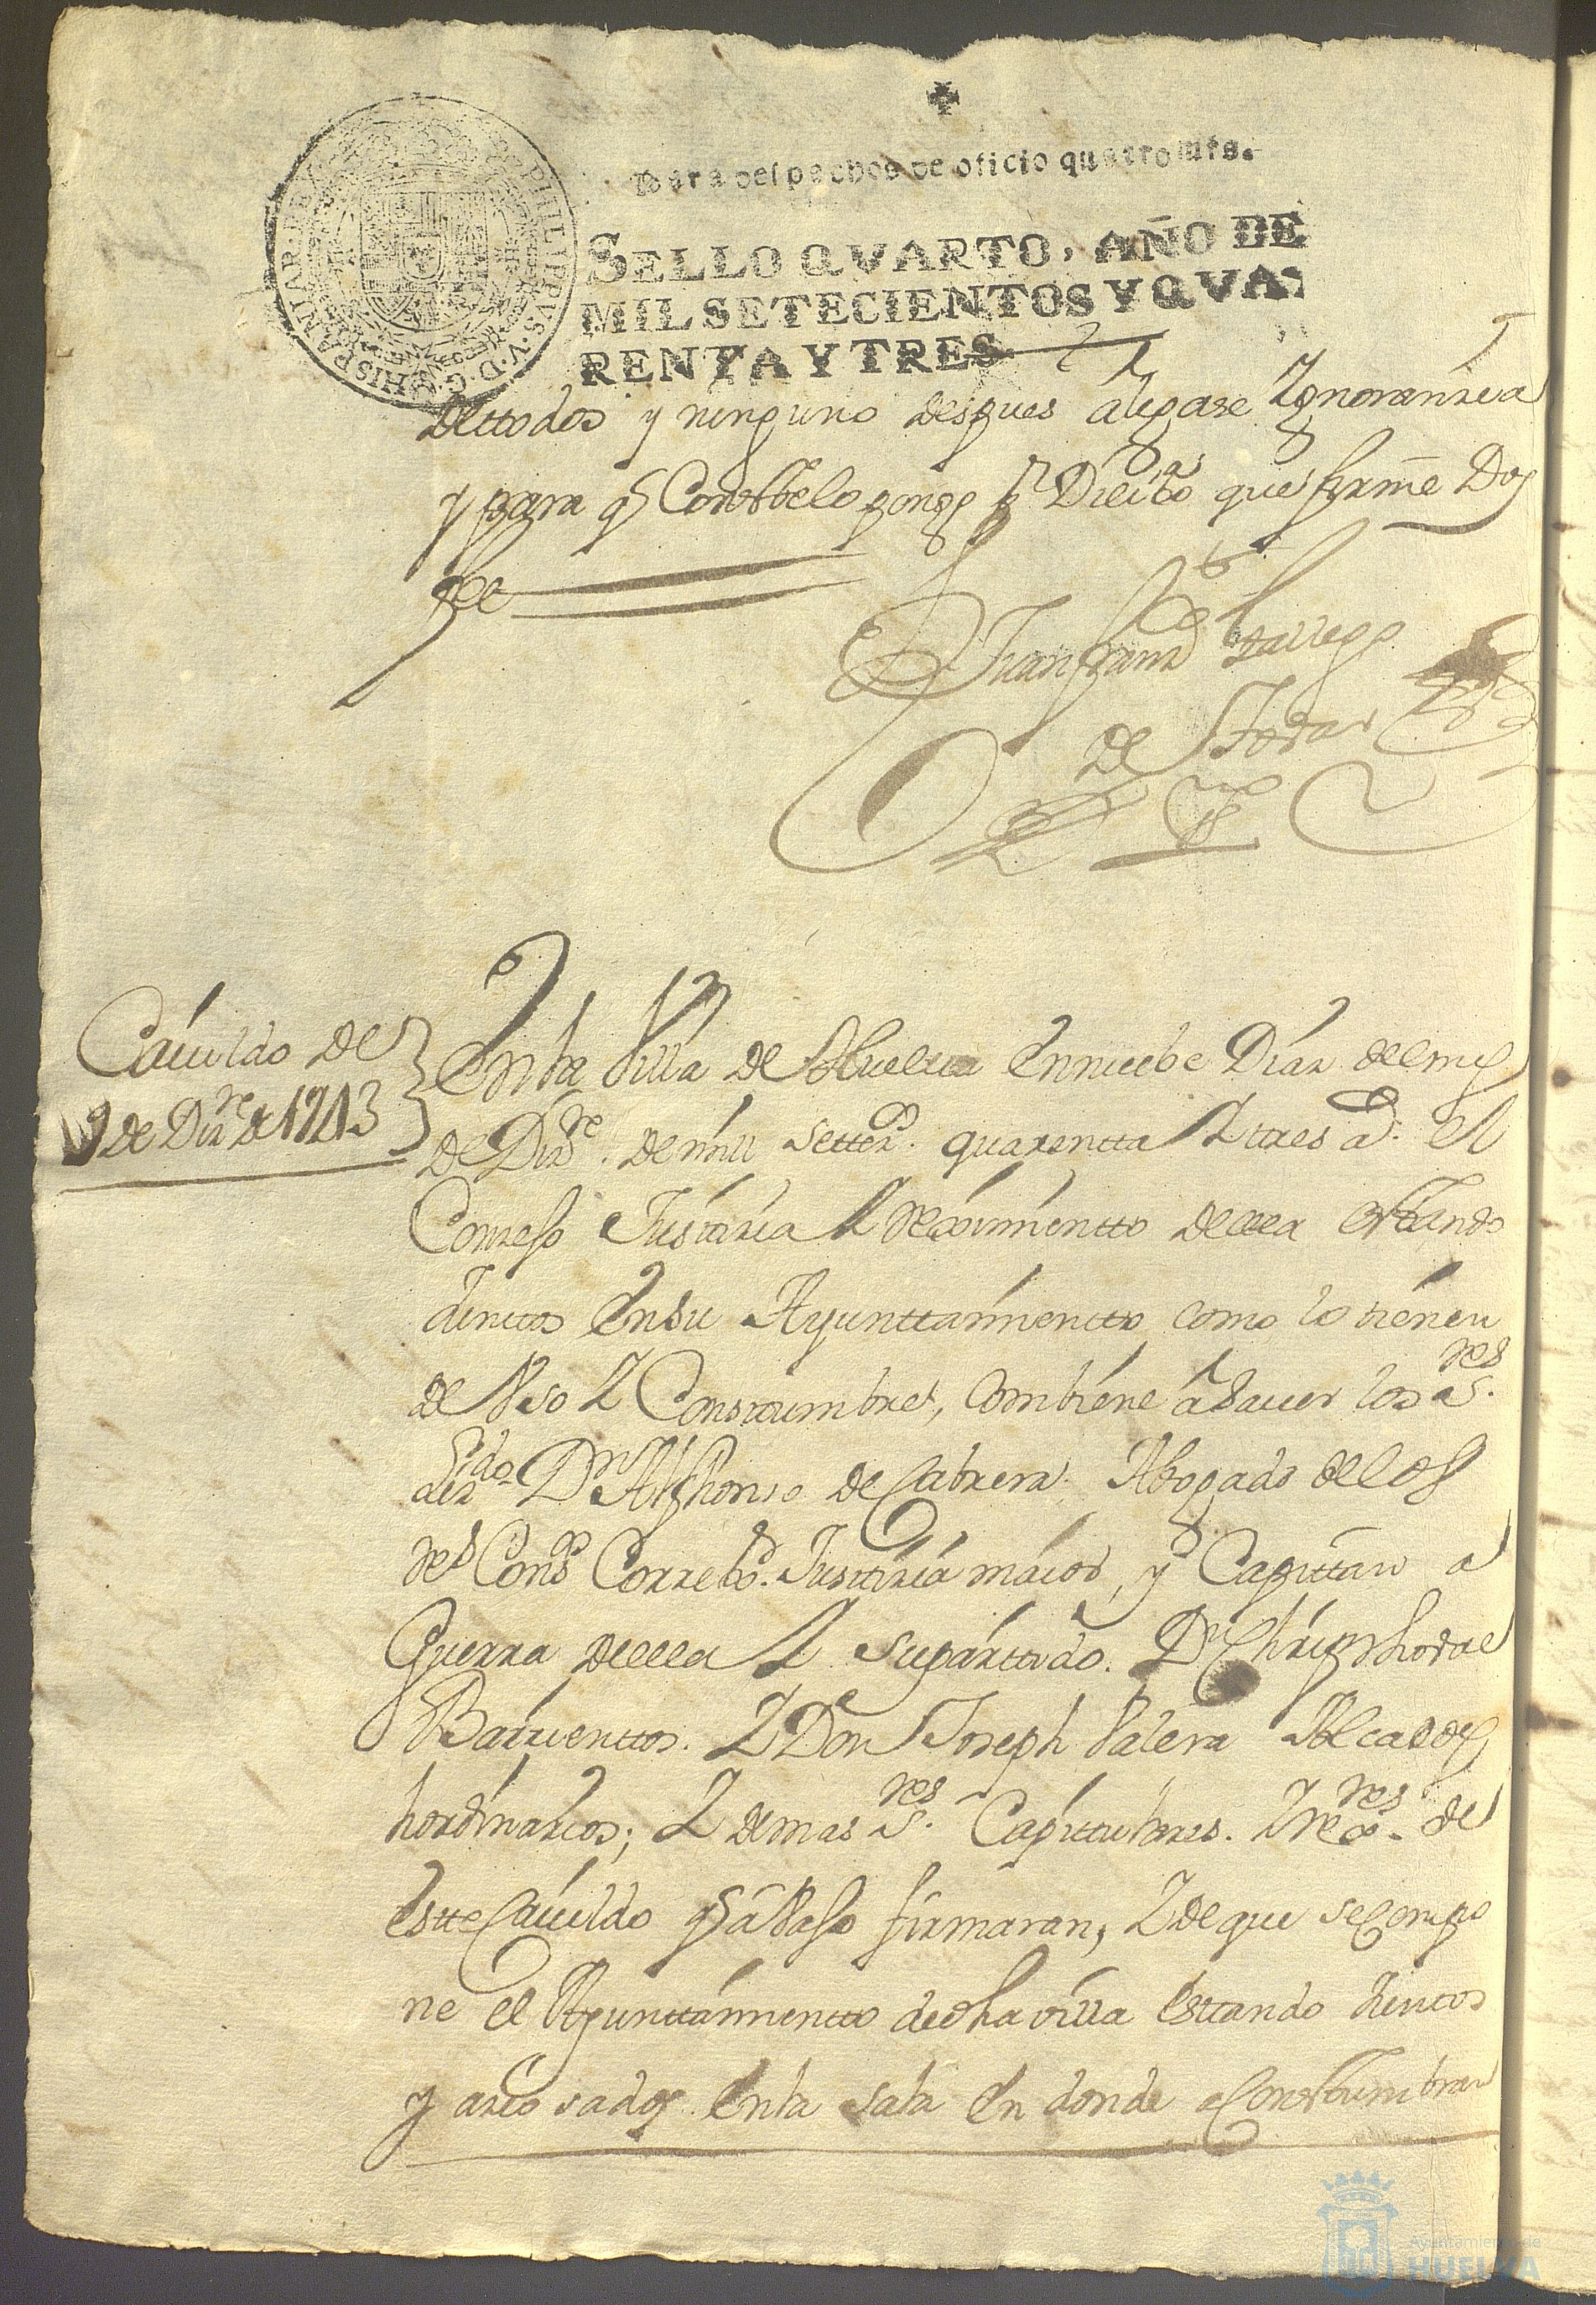 Para despachos de oficio quatro mrs.
SELLO QVARTO, AÑO DE
MIL SETECIENTOS Y QVA-
RENTA Y TRES
PHILIPPVS. V. D. G. HISPANIAR. REX
dettodos y ninguno despues alegase Ygnoranzia
y para q Consttelo pongo pr Dilixa que firme Doy
fee
Juan franco Gallego
de Tovar
Cauildo de
9 de Dizre de 1743
En la Villa de Huelua En nuebe Dias del mes
de Dizre. de mill settezos. quarentta Y tres as. El
Conzejo Justtizia Y Reximientto della esttando
Junttos En su Ayunttamientto como lo tienen
de Vso Y Consttumbre, Combiene â sauer los Sres.
Lizdo. Dn Alphonso de Cabrera. Abogado de los
Rs Consos Correxor. Justtizia maior, y Capittan a
Guerra della Y su parttido. Dn Christhoval
Barrienttos. Y Don Joseph Valera Alcaldes
hordinarios; Y demas Sres. Capittulares. Y Rexres. de
estte Cauildo q â Vajo firmaran, Y de que se Compo
ne el Ayunttamientto de dha villa Esttando Junttos
y acosados En la sala En donde a Consttumbran
Ayuntamiento de
HUELVA